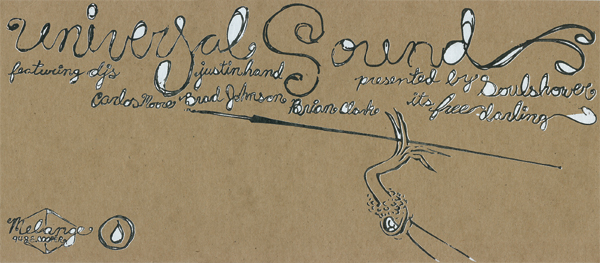 universal Sound
featuring djs justin hand presented by Soulshower
Carlos Moore Brad Johnson Brian Clarke its free darling
Melange